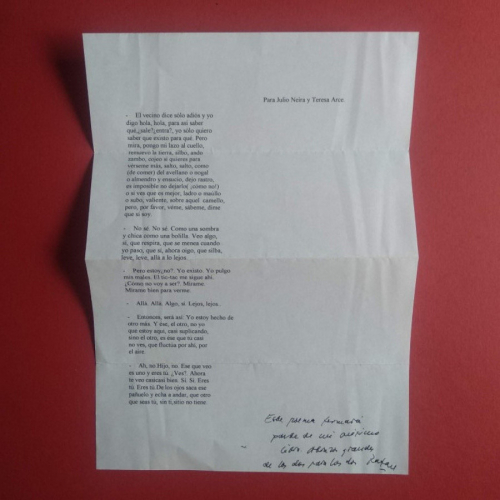 Para Julio Neira y Teresa Arce.
- El vecino dice sólo adiós y yo
digo hola, hola, para así saber
qué¿sale?¿entra?, yo sólo quiero
saber que existo para qué. Pero
mira, pongo mi lazo al cuello,
remuevo la tierra, silbo, ando
zambo, cojeo si quieres para
verseme más, salto, salto, como
(de comer) del avellano o nogal
o almendro y ensucio, dejo rastro,
es imposible no dejarlo( ¡cómo no!)
o si ves que es mejor, ladro o maúllo
o subo, valiente, sobre aquel camello,
pero, por favor, véme, sábeme, dime
que sí soy.
- No sé. No sé. Como una sombra
y chica como una bolilla. Veo algo,
sí, que respira, que se menea cuando
yo paso, que sí, ahora oigo, que silba,
leve, leve, allá a lo lejos.
- Pero estoy¿no?. Yo existo. Yo pulgo
mis males. El tic-tac me sigue ahí.
¿Cómo no voy a ser?. Mírame.
Mírame bien para verme.
- Allá. Allá. Algo, sí. Lejos, lejos.
- Entonces, será así: Yo estoy hecho de
otro más. Y ése, el otro, no yo
que estoy aquí, casi suplicando,
sino el otro, es ése que tú casi
no ves, que fluctúa por ahí, por
el aire.
- Ah, no.Hijo, no. Ese que veo
es uno y eres tú. ¿Ves?. Ahora
te veo casinasi bien. Sí. Sí. Eres
tú. Eres tú.De los ojos saca ese
pañuelo y echa a andar, que otro
que seas tú, sin ti,sitio no tiene
Este poema formará
parte de mi próximo
libro. Abrazo grande
de los dos para los dos Rafael